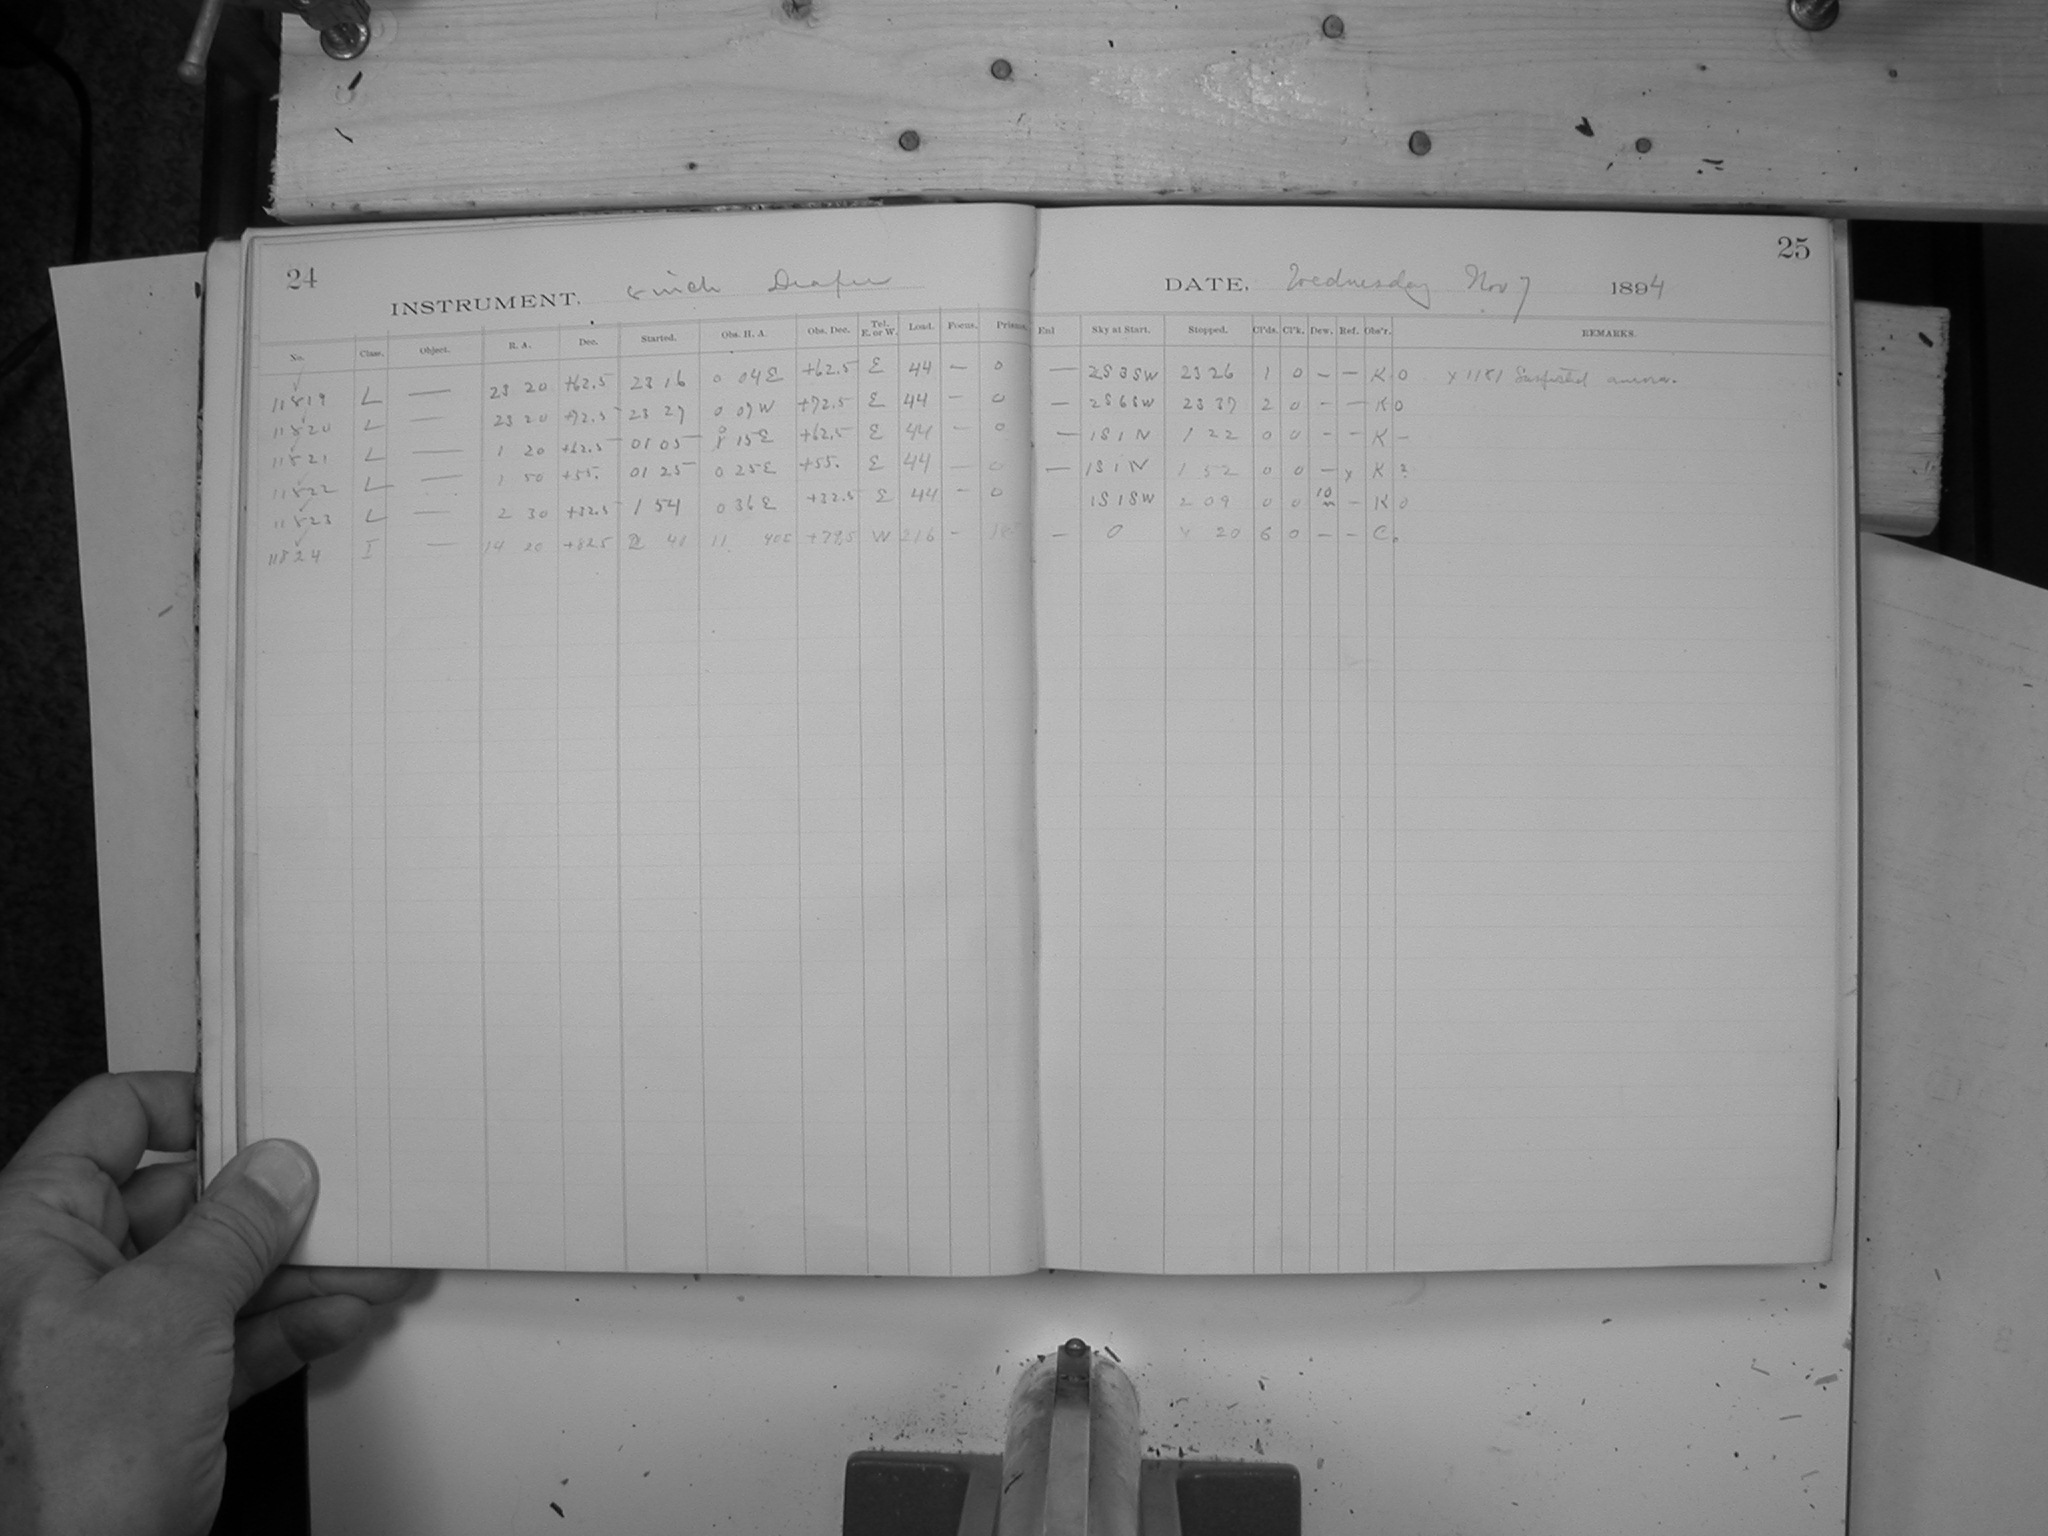 24
INSTRUMENT. 8 inch Draper
No. Class. Object. R. A. Dec. Started. Obs. H. A. Obs. Dec. Tel. E. or W. Load. Focus. Prisms.
11819 L — 23 20 +62.5 23 16 0 04 E +62.5 E 44 — 0
11820 L — 23 20 +72.5 23 27 0 07 W +72.5 E 44 — 0
11821 L — 1 20 +62.5 01 05 0 15 E +62.5 E 44 — 0
11822 L — 1 50 +55. 01 25 0 25 E +55. E 44 — 0
11823 L — 2 30 +32.5 1 54 0 36 E +32.5 E 44 — 0
11824 I — 14 20 +82.5 2 40 11 40 E +79.5 W 216 —
25
DATE. Wednesday Nov 7 1894
Enl Sky at Start. Stopped. Cl'ds. Cl'k. Dew. Ref. Obs'r. REMARKS.
— 2S3SW 23 26 1 0 — — K 0 Suspected aurora.
— 2S6SW 23 37 2 0 — — K 0
— 1S1N 1 22 0 0 — — K —
— 1S1N 1 52 0 0 — y K 2
1S1SW 2 09 0 0 10 m — K 0
— 0 4 20 6 0 — — C.